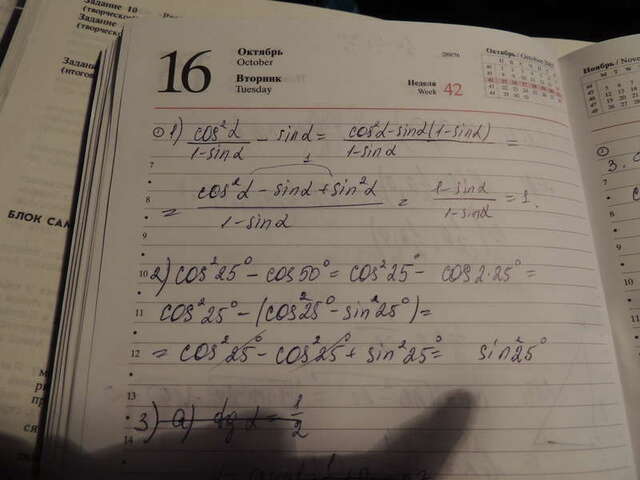 Задание 10
(творческ
Задание
(творческ
Задани
(итогов
БЛОК САМ
16
Октябрь
October
Вторник
Tuesday
Неделя
Week 42
Октябрь / October
Ноябрь / Nove
① 1) cos²α/(1-sinα) - sinα = (cos²α-sinα(1-sinα))/(1-sinα) =
7
1
8 = (cos²α - sinα + sin²α)/(1-sinα) = (1-sinα)/(1-sinα) = 1.
9
10 2) cos²25° - cos50° = cos²25° - cos2·25° =
11 cos²25° - (cos²25° - sin²25°) =
12 = cos²25° - cos²25° + sin²25° = sin²25°
13
3) a) tg α = 1/2
14